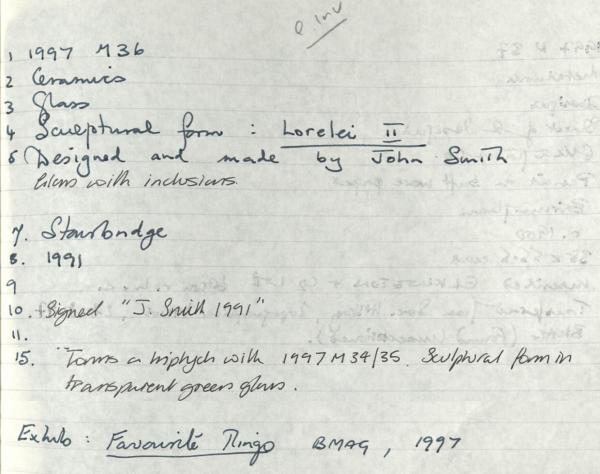 e inv
1 1997 M36
2 Ceramics
3 Glass
4 Sculptural form : Lorelei II
5 Designed and made by John Smith
Glass with inclusions.
7. Stourbridge
8. 1991
9
10. Signed "J. Smith 1991"
11.
15. Forms a triptych with 1997 M34/35. Sculptural form in
transparent green glass.
Exhib : Favourite Things BMAG, 1997